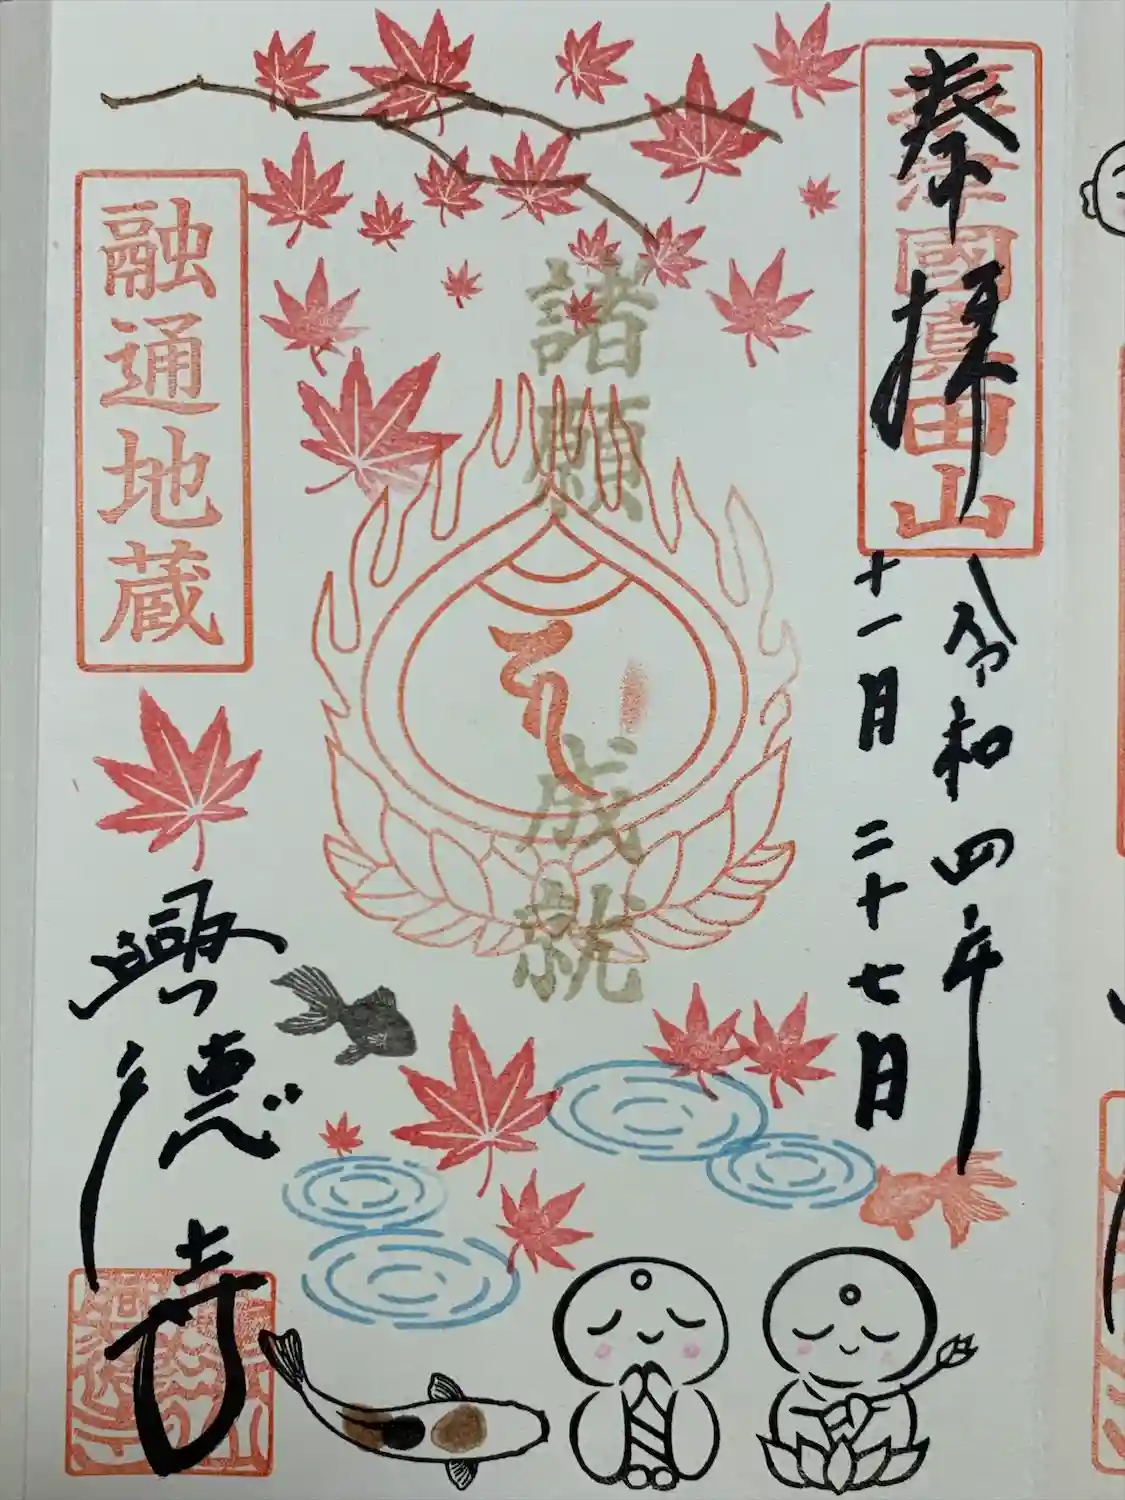 奉拝
國眞田山
令和四年
十一月二十七日
諸願成就
融通地蔵
興徳寺